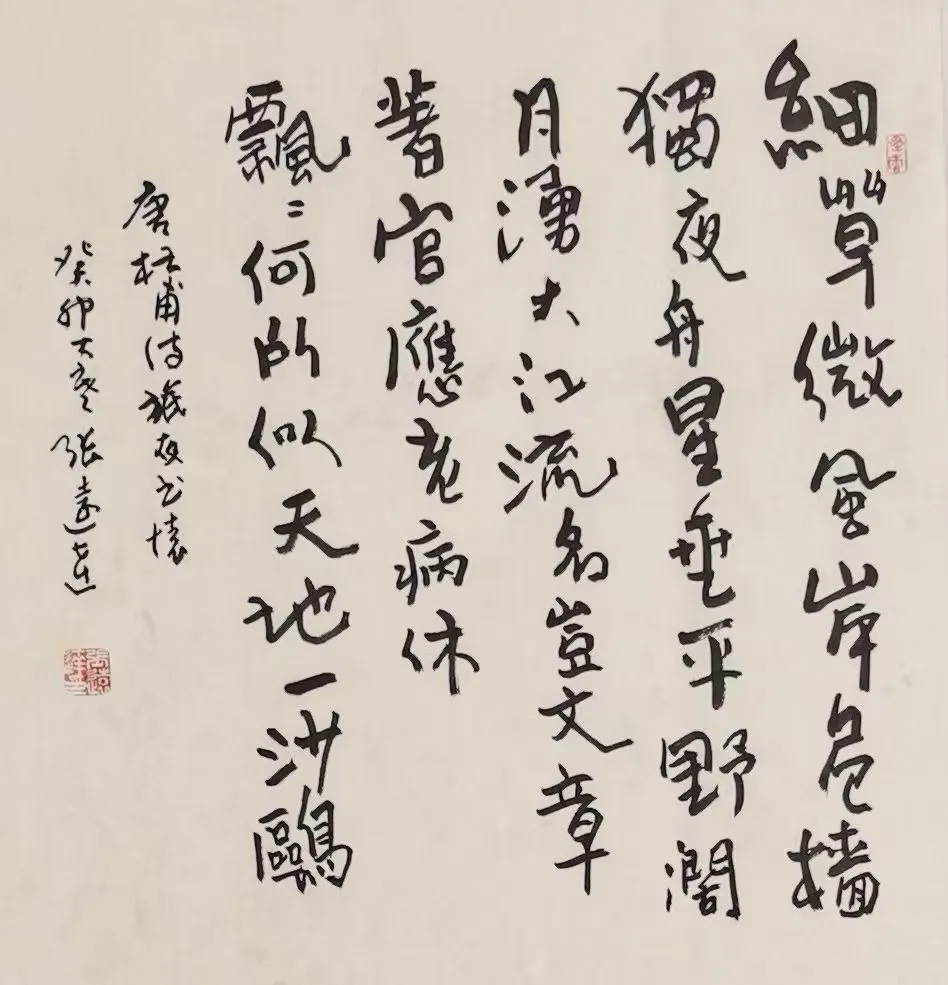 細草微風岸危檣
獨夜舟星垂平野闊
月湧大江流名豈文章
著官應老病休
飄〻何所似天地一沙鷗
唐杜甫诗旅夜书懷
癸卯大寒張遠達